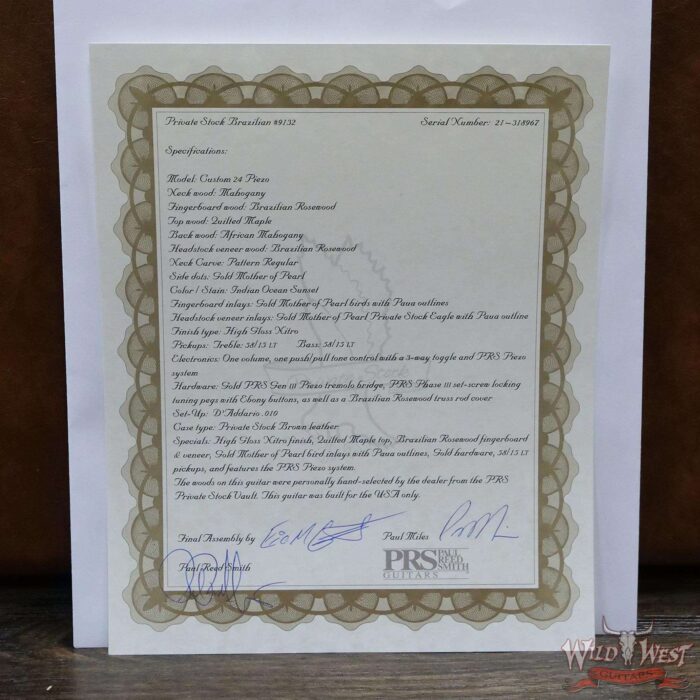 Private Stock Brazilian #9132 Serial Number: 21-318967
Specifications:
Model: Custom 24 Piezo
Neck wood: Mahogany
Fingerboard wood: Brazilian Rosewood
Top wood: Quilted Maple
Back wood: African Mahogany
Headstock veneer wood: Brazilian Rosewood
Neck Carve: Pattern Regular
Side dots: Gold Mother of Pearl
Color / Stain: Indian Ocean Sunset
Fingerboard inlays: Gold Mother of Pearl birds with Paua outlines
Headstock veneer inlays: Gold Mother of Pearl Private Stock Eagle with Paua outline
Finish type: High Gloss Nitro
Pickups: Treble: 58/15 LT Bass: 58/15 LT
Electronics: One volume, one push/pull tone control with a 3-way toggle and PRS Piezo
system
Hardware: Gold PRS Gen III Piezo tremolo bridge, PRS Phase III set-screw locking
tuning pegs with Ebony buttons, as well as a Brazilian Rosewood truss rod cover
Set-Up: D'Addario .010
Case type: Private Stock Brown leather
Specials: High Gloss Nitro finish, Quilted Maple top, Brazilian Rosewood fingerboard
& veneer, Gold Mother of Pearl bird inlays with Paua outlines, Gold hardware, 58/15 LT
pickups, and features the PRS Piezo system.
The woods on this guitar were personally hand-selected by the dealer from the PRS
Private Stock Vault. This guitar was built for the USA only.
Final Assembly by Paul Miles
Paul Reed Smith
PRS PAUL
REED
SMITH
GUITARS
WILD WEST
GUITARS